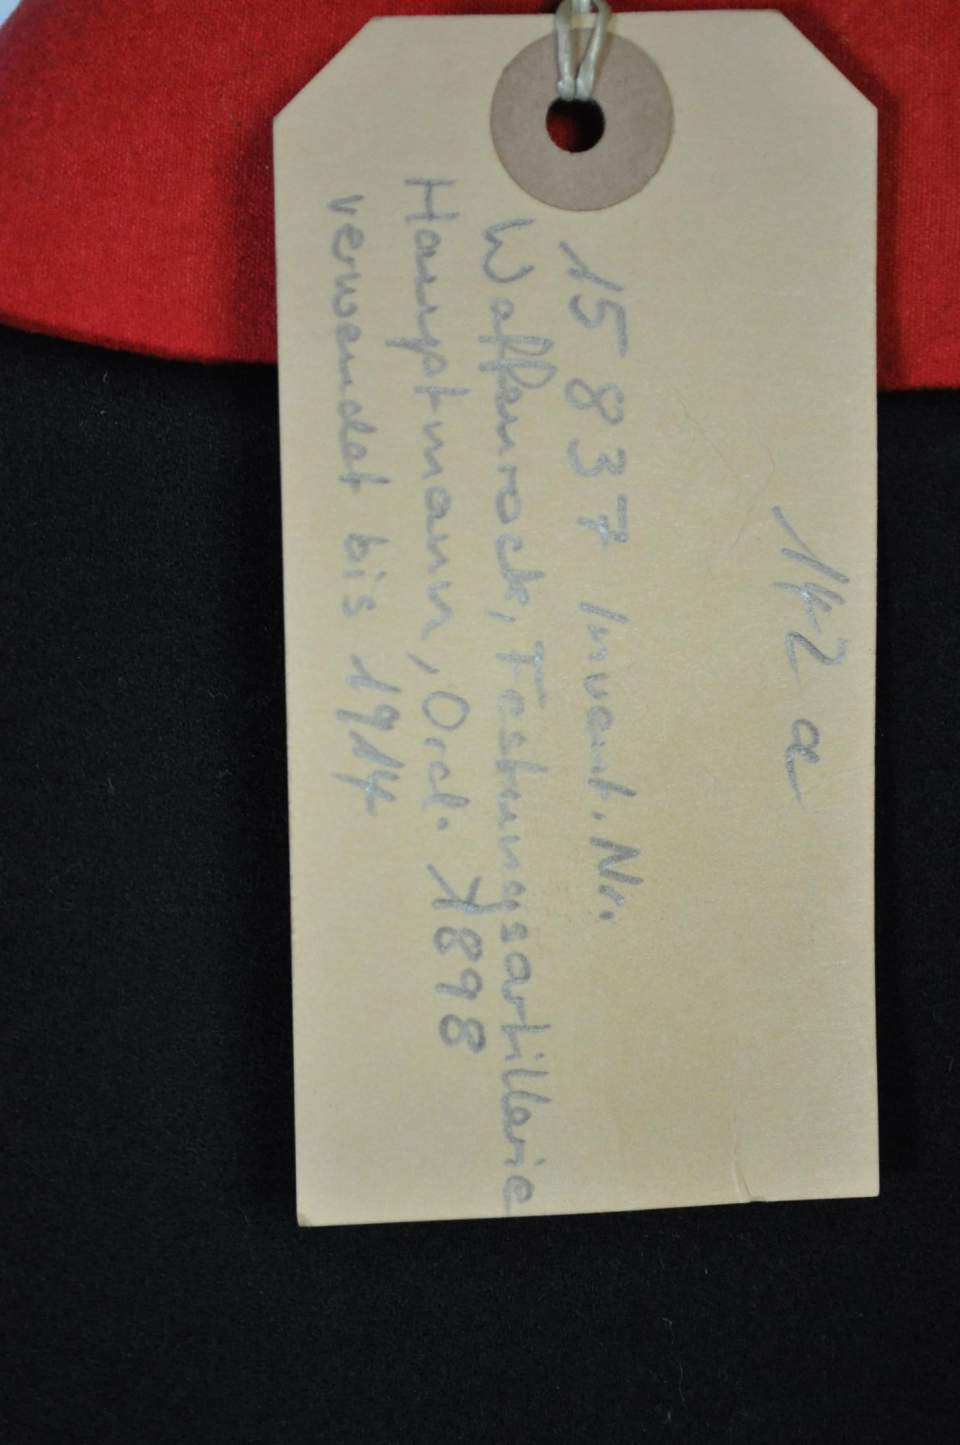 142 a
15837 Invent. Nr.
Waffenrock, Festungsartillerie
Hauptmann, Ord. 1898
verwendet bis 1914